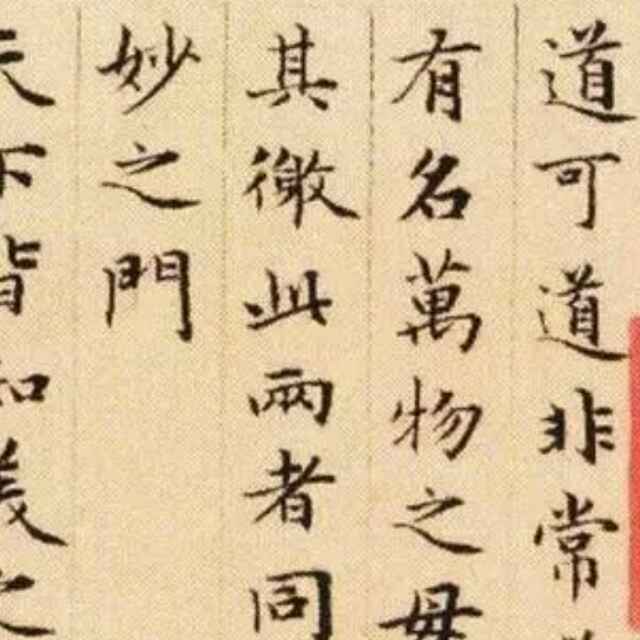 道可道非常
有名萬物之母
其徼此兩者同
妙之門
天下皆知美之